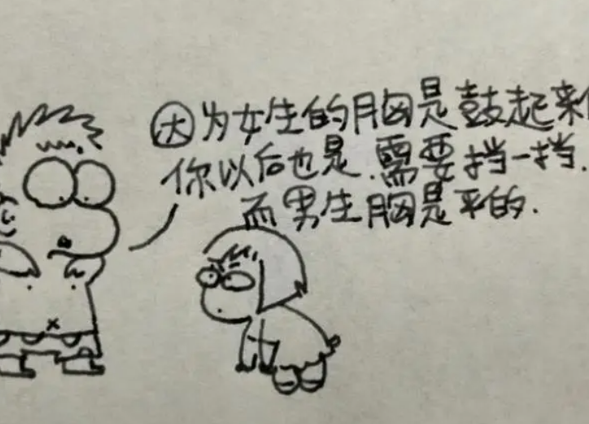 因为女生的胸是鼓起来
你以后也是.需要挡一挡.
而男生胸是平的.